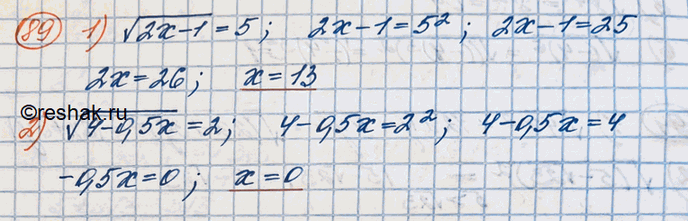 89 1) √(2x-1) = 5; 2x-1=5²; 2x-1=25
2x=26; x=13
©reshak.ru
2) √(4-0,5x) = 2; 4-0,5x=2²; 4-0,5x=4
-0,5x=0; x=0